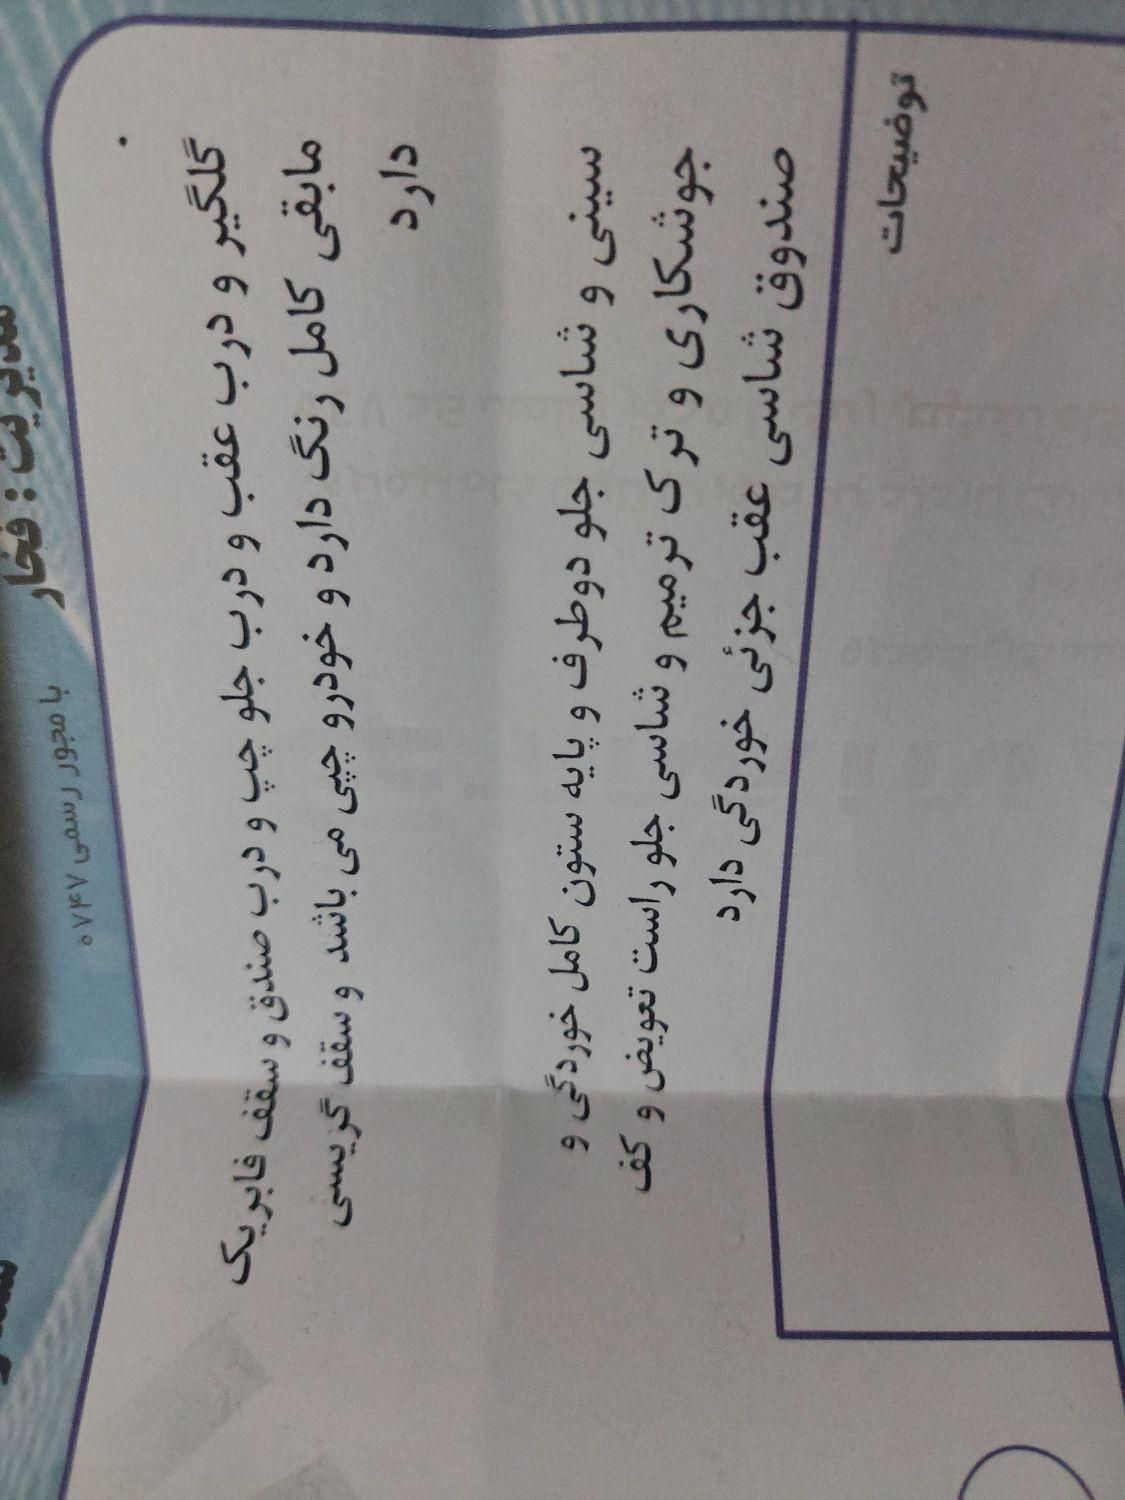 مدیریت : فخار
با مجور رسمی ۰۷۴۷
گلگیر و درب عقب و درب جلو چپ و درب صندق و سقف فابریک
مابقی کامل رنگ دارد و خودرو چپی می باشد و سقف گریسی
دارد
سینی و شاسی جلو دوطرف و پایه ستون کامل خوردگی و
جوشکاری و ترک ترمیم و شاسی جلو راست تعویض و کف
صندوق شاسی عقب جزئی خوردگی دارد
توضیحات